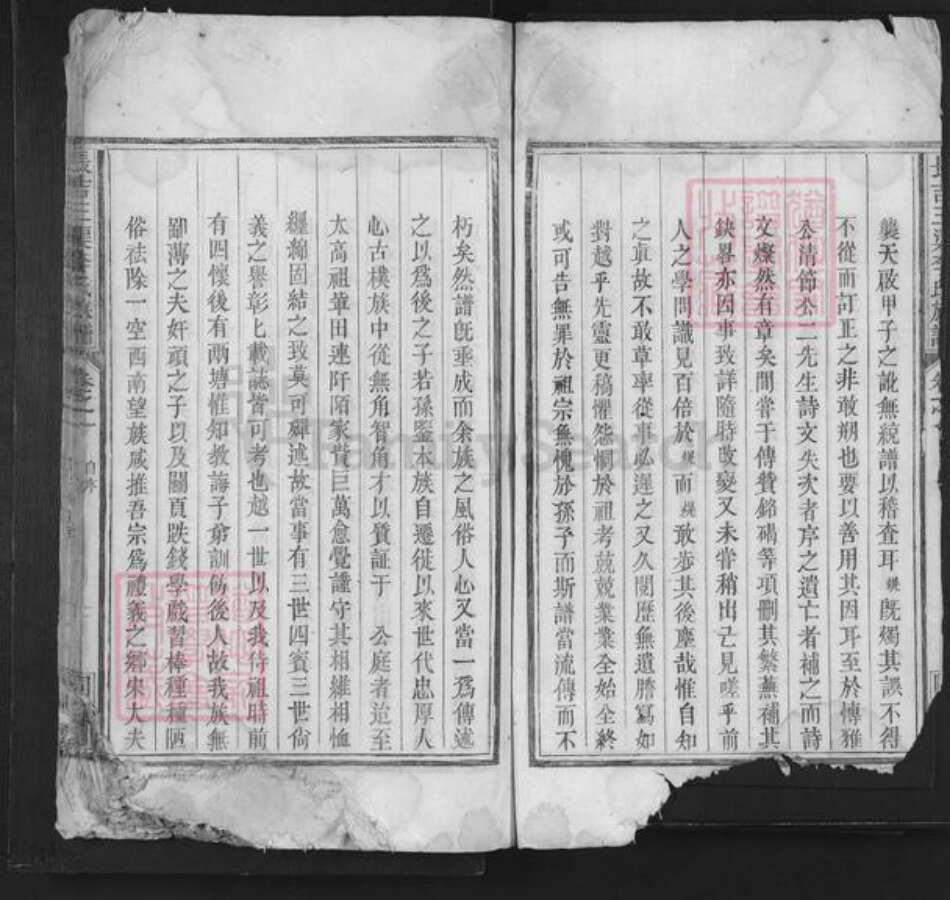 襲天啟甲子之訛無統譜以稽查耳㷼既燭其誤不得
不從而訂正之非敢朔也要以善用其因耳至於博雅
公清節公二先生詩文失次者序之遺亡者補之而詩
文燦然有章矣間嘗于傳贊銘碣等項刪其繁蕪補其
缺畧亦因事致詳隨時改變又未嘗稍出己見嗟乎前
人之學問識見百倍於 而 敢步其後塵哉惟自知
之真故不敢草率從事必遲之又久閱歷無遺謄寫如
對越乎先靈更稿懼怨恫於祖考兢兢業業全始全終
或可告無罪於祖宗無愧於孫子而斯譜當流傳而不
朽矣然譜既垂成而余族之風俗人心又當一為傳述
之以為後之子若孫鑒本族自遷徙以來世代忠厚人
心古樸族中從無角智角才以質証于 公庭者迨至
太高祖華田連阡陌家貲巨萬愈覺謹守其相維相恤
纏綿固結之致莫可殫述故當事有三世四賓三世尚
義之譽彰彰載誌皆可考也越一世以及我待祖時前
有四懷後有兩塘惟知教誨子弟訓飭後人故我族無
鄙薄之夫奸頑之子以及鬭頁跌錢學戲習棒種種陋
俗祛除一空西南望族咸推吾宗為禮義之鄉宋大夫